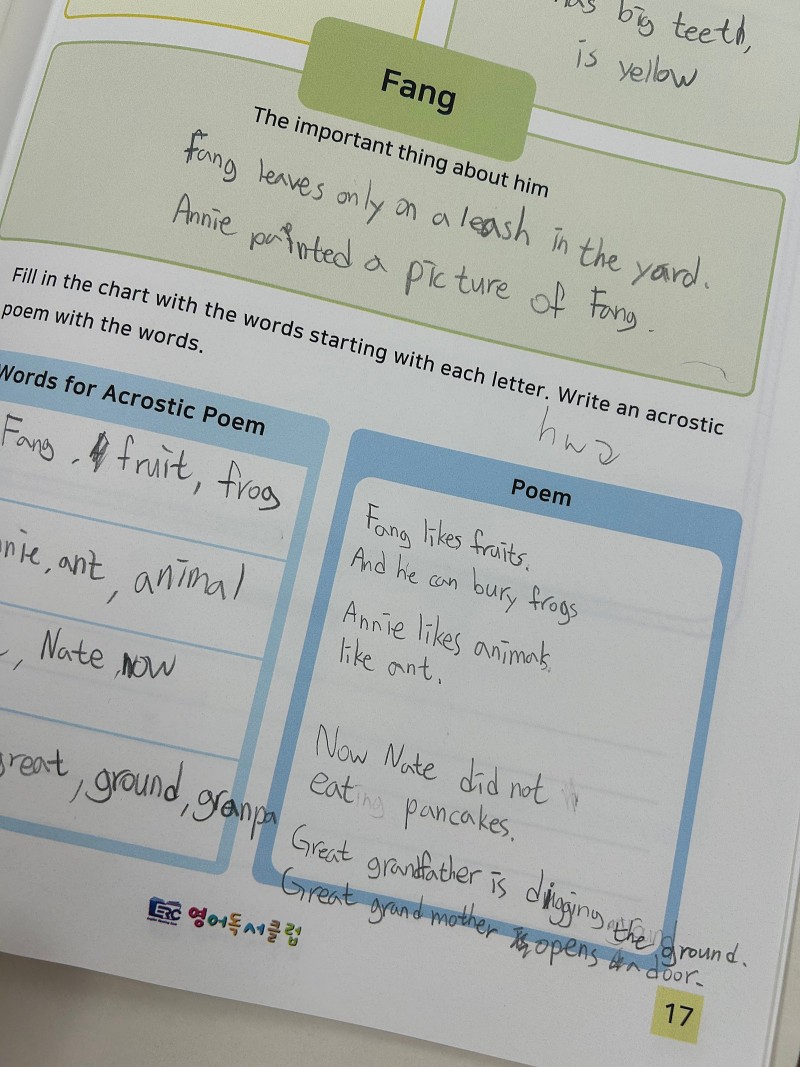 has big teeth,
is yellow
Fang
The important thing about him
Fang leaves only on a leash in the yard.
Annie painted a picture of Fang.
Fill in the chart with the words starting with each letter. Write an acrostic
poem with the words.
Words for Acrostic Poem
Fang, fruit, frog
nnie, ant, animal
, Nate, now
great, ground, granpa
hw2
Poem
Fang likes fruits.
And he can bury frogs
Annie likes animals
like ant.
Now Nate did not
eat pancakes.
Great grandfather is digging the ground.
Great grand mother opens a door.
ERC 영어독서클럽
17